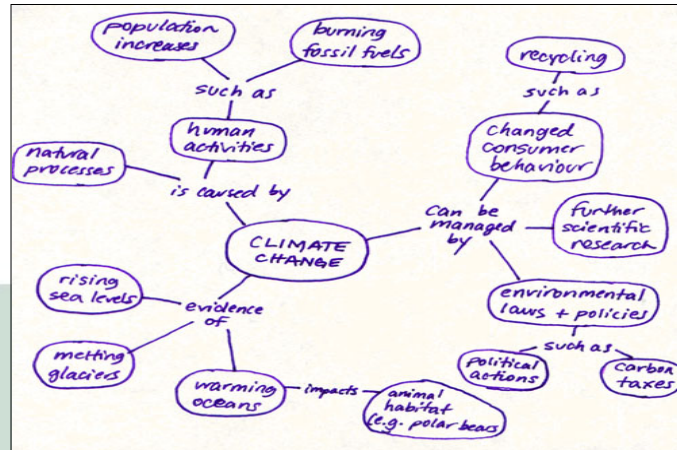 population
increases
burning
fossil fuels
such as
human
activities
natural
processes
is caused by
CLIMATE
CHANGE
recycling
such as
changed
consumer
behaviour
can be
managed
by
further
scientific
research
environmental
laws + policies
such as
political
actions
carbon
taxes
rising
sea levels
evidence
of
melting
glaciers
warming
oceans
impacts
animal
habitat
(e.g. polar bears